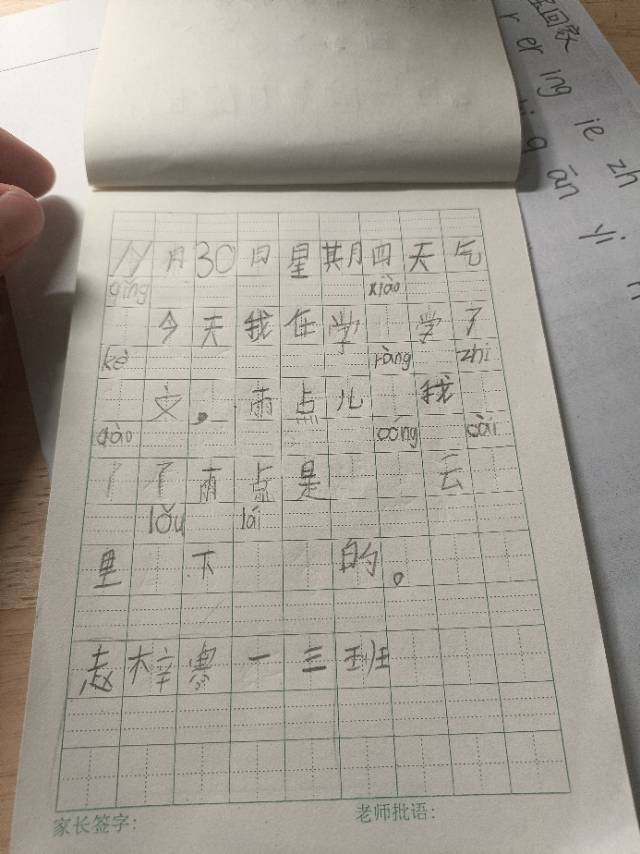 11月30日星期四天气
qíng xiào
今天我在学 学了
kè ràng zhī
文。雨点儿 我
dào cóng cǎi
了雨点是 云
lǐu lái
里 下 的。
赵梓寒 一 三 班
家长签字: 老师批语:
回家
r er ing ie zh
q ān yi